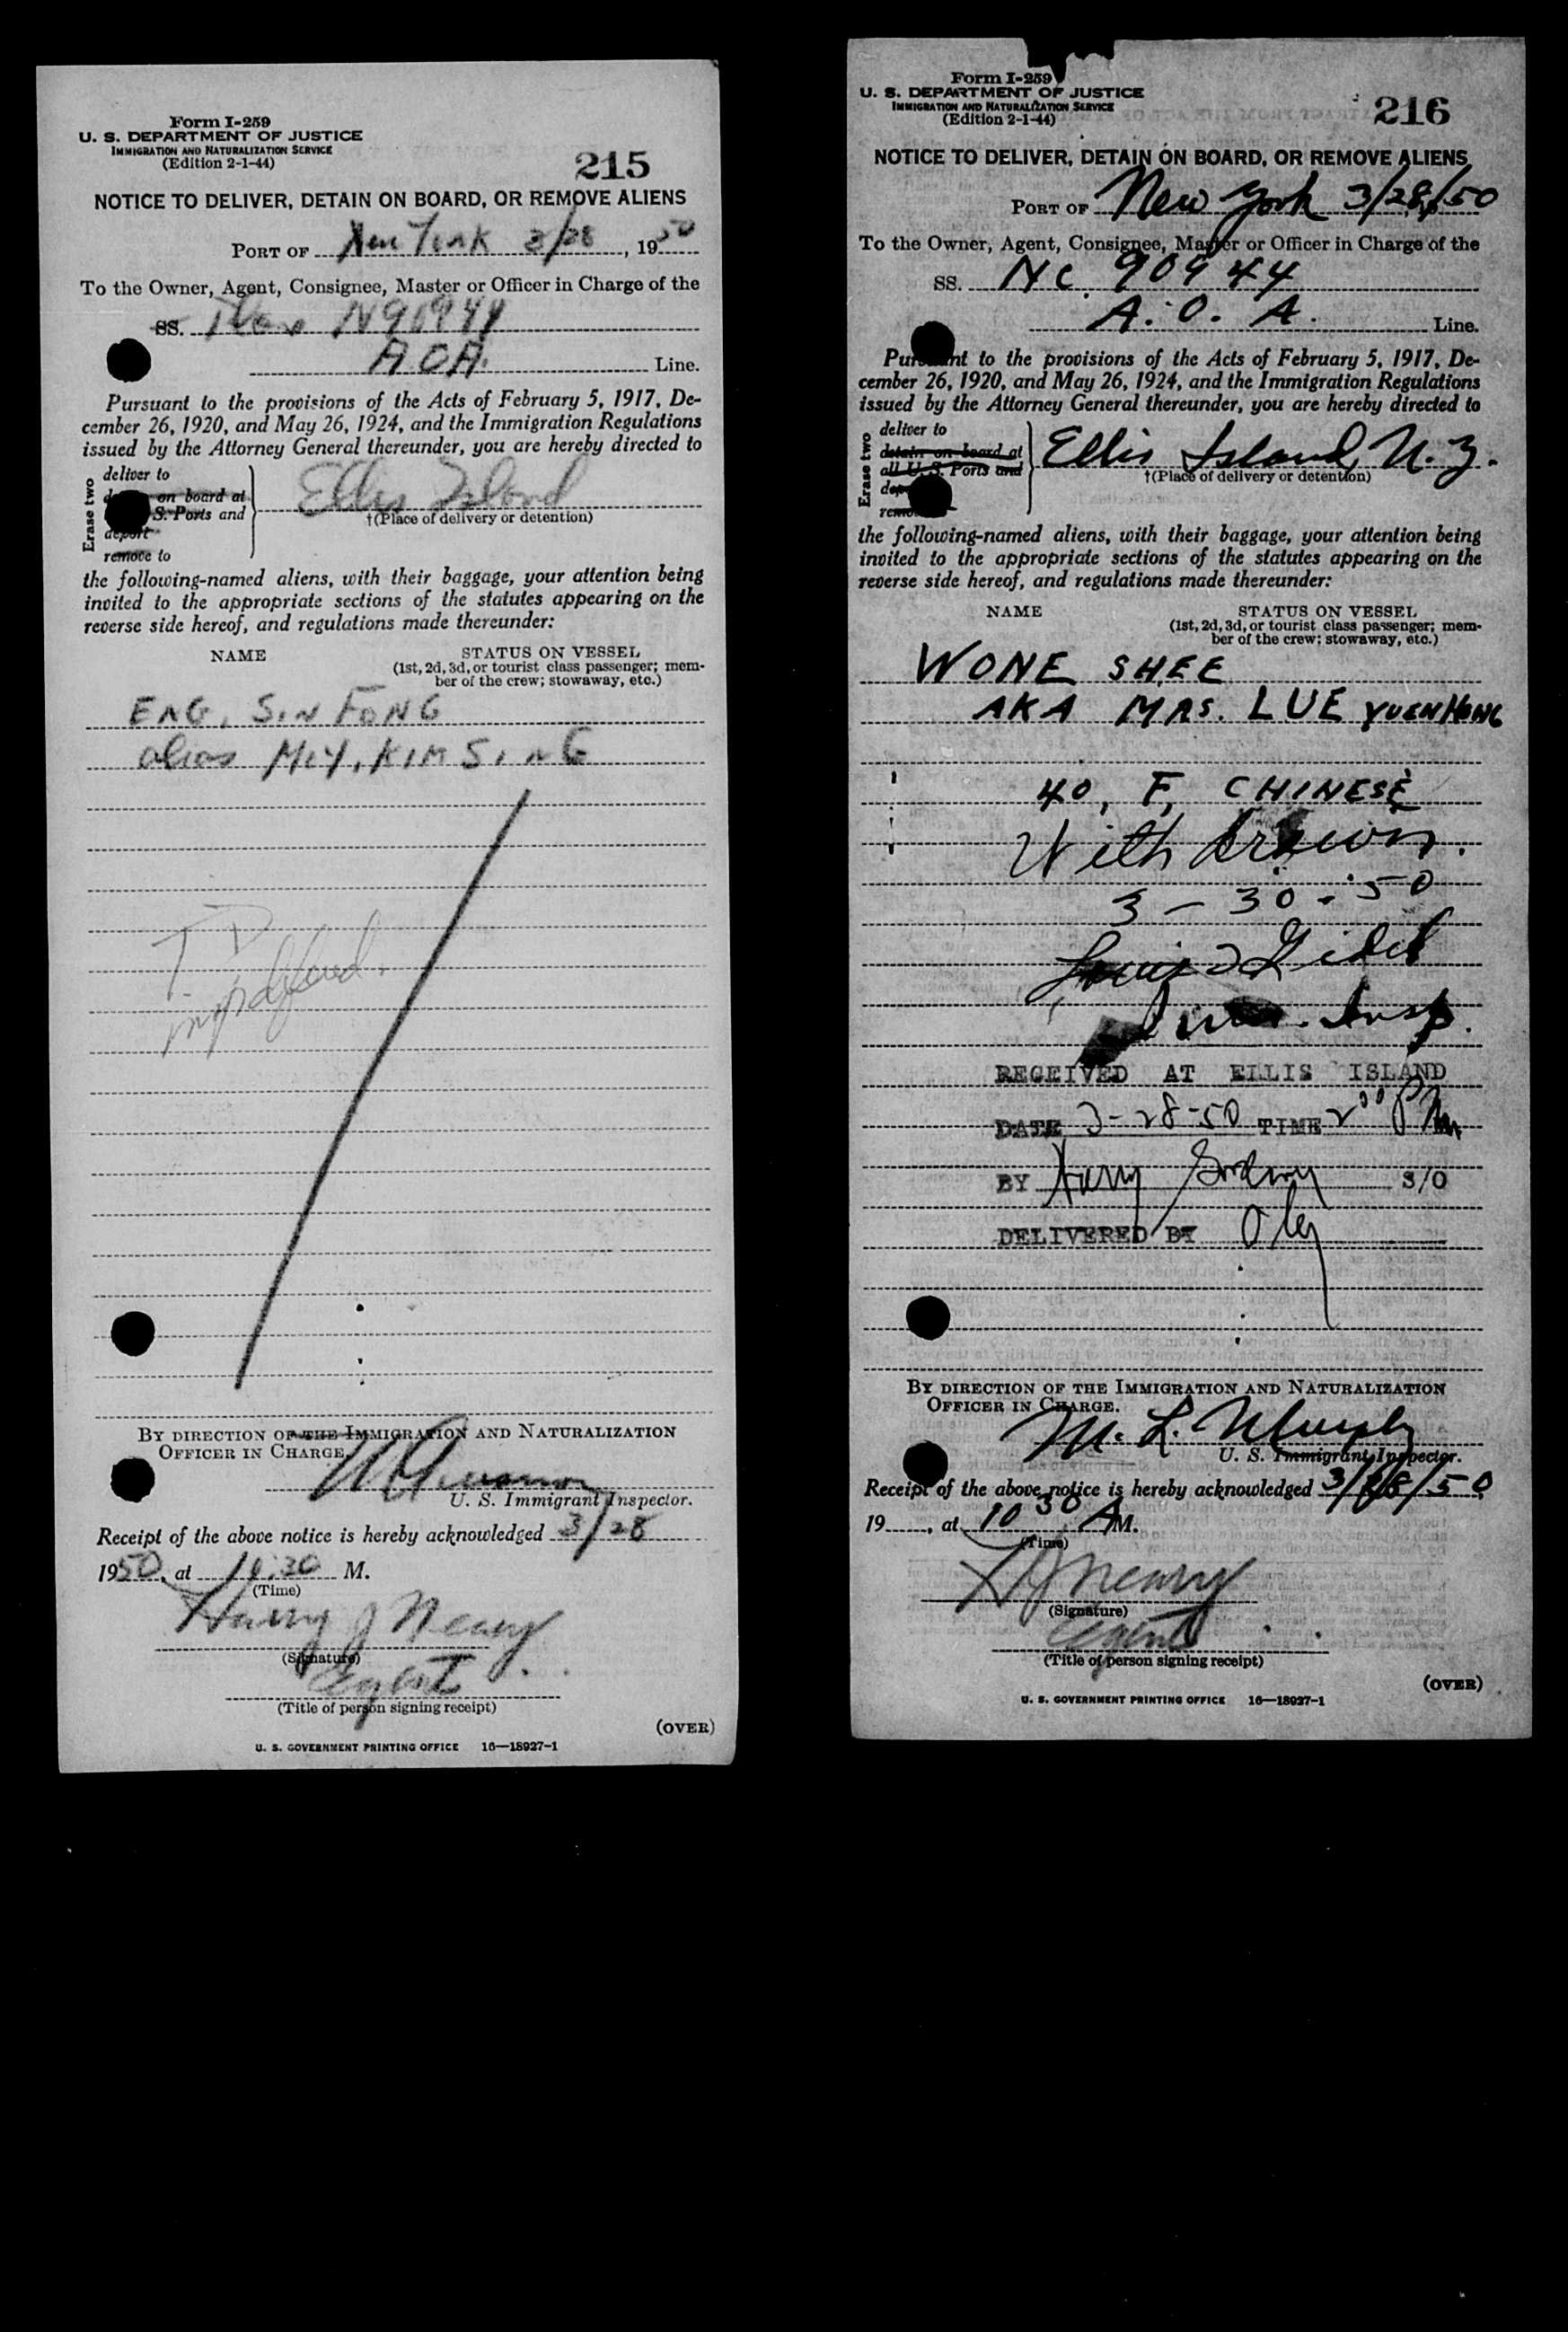 Form I-259
U. S. DEPARTMENT OF JUSTICE
IMMIGRATION AND NATURALIZATION SERVICE
(Edition 2-1-44)
215
NOTICE TO DELIVER, DETAIN ON BOARD, OR REMOVE ALIENS
PORT OF New York 3/28, 1950
To the Owner, Agent, Consignee, Master or Officer in Charge of the
SS. N90944
A.O.A. Line.
Pursuant to the provisions of the Acts of February 5, 1917, De-
cember 26, 1920, and May 26, 1924, and the Immigration Regulations
issued by the Attorney General thereunder, you are hereby directed to
Erase two
deliver to
on board at
S. Ports and
deport
remove to
Ellis Island
†(Place of delivery or detention)
the following-named aliens, with their baggage, your attention being
invited to the appropriate sections of the statutes appearing on the
reverse side hereof, and regulations made thereunder:
NAME
STATUS ON VESSEL
(1st, 2d, 3d, or tourist class passenger; mem-
ber of the crew; stowaway, etc.)
ENG, SIN FONG
alias MOY, KIM SING
T. D.
BY DIRECTION OF THE IMMIGRATION AND NATURALIZATION
OFFICER IN CHARGE
U. S. Immigrant Inspector.
Receipt of the above notice is hereby acknowledged 3/28
1950, at 10:30 M.
(Time)
Harry J Neary
(Signature)
Agent
(Title of person signing receipt)
(OVER)
U. S. GOVERNMENT PRINTING OFFICE 16—18927-1
Form I-259
U. S. DEPARTMENT OF JUSTICE
IMMIGRATION AND NATURALIZATION SERVICE
(Edition 2-1-44)
216
NOTICE TO DELIVER, DETAIN ON BOARD, OR REMOVE ALIENS
PORT OF New York 3/28/50
To the Owner, Agent, Consignee, Master or Officer in Charge of the
SS. NC. 90944
A. O. A. Line.
Pursuant to the provisions of the Acts of February 5, 1917, De-
cember 26, 1920, and May 26, 1924, and the Immigration Regulations
issued by the Attorney General thereunder, you are hereby directed to
Erase two
deliver to
detain on board at
all U. S. Ports and
Ellis Island, N. Y.
†(Place of delivery or detention)
the following-named aliens, with their baggage, your attention being
invited to the appropriate sections of the statutes appearing on the
reverse side hereof, and regulations made thereunder:
NAME
STATUS ON VESSEL
(1st, 2d, 3d, or tourist class passenger; mem-
ber of the crew; stowaway, etc.)
WONE SHEE
AKA MRS. LUE YUEN HONG
40, F, CHINESE
Withdrawn.
3-30-50
Insp.
RECEIVED AT ELLIS ISLAND
DATE 3-28-50 TIME 2 00 PM
BY Harry S/O
DELIVERED BY
BY DIRECTION OF THE IMMIGRATION AND NATURALIZATION
OFFICER IN CHARGE.
M. L. Murphy
U. S. Immigrant Inspector.
Receipt of the above notice is hereby acknowledged 3/28/50
19, at 10 30 A M.
(Time)
H J Neary
(Signature)
Agent
(Title of person signing receipt)
(OVER)
U. S. GOVERNMENT PRINTING OFFICE 16—18927-1